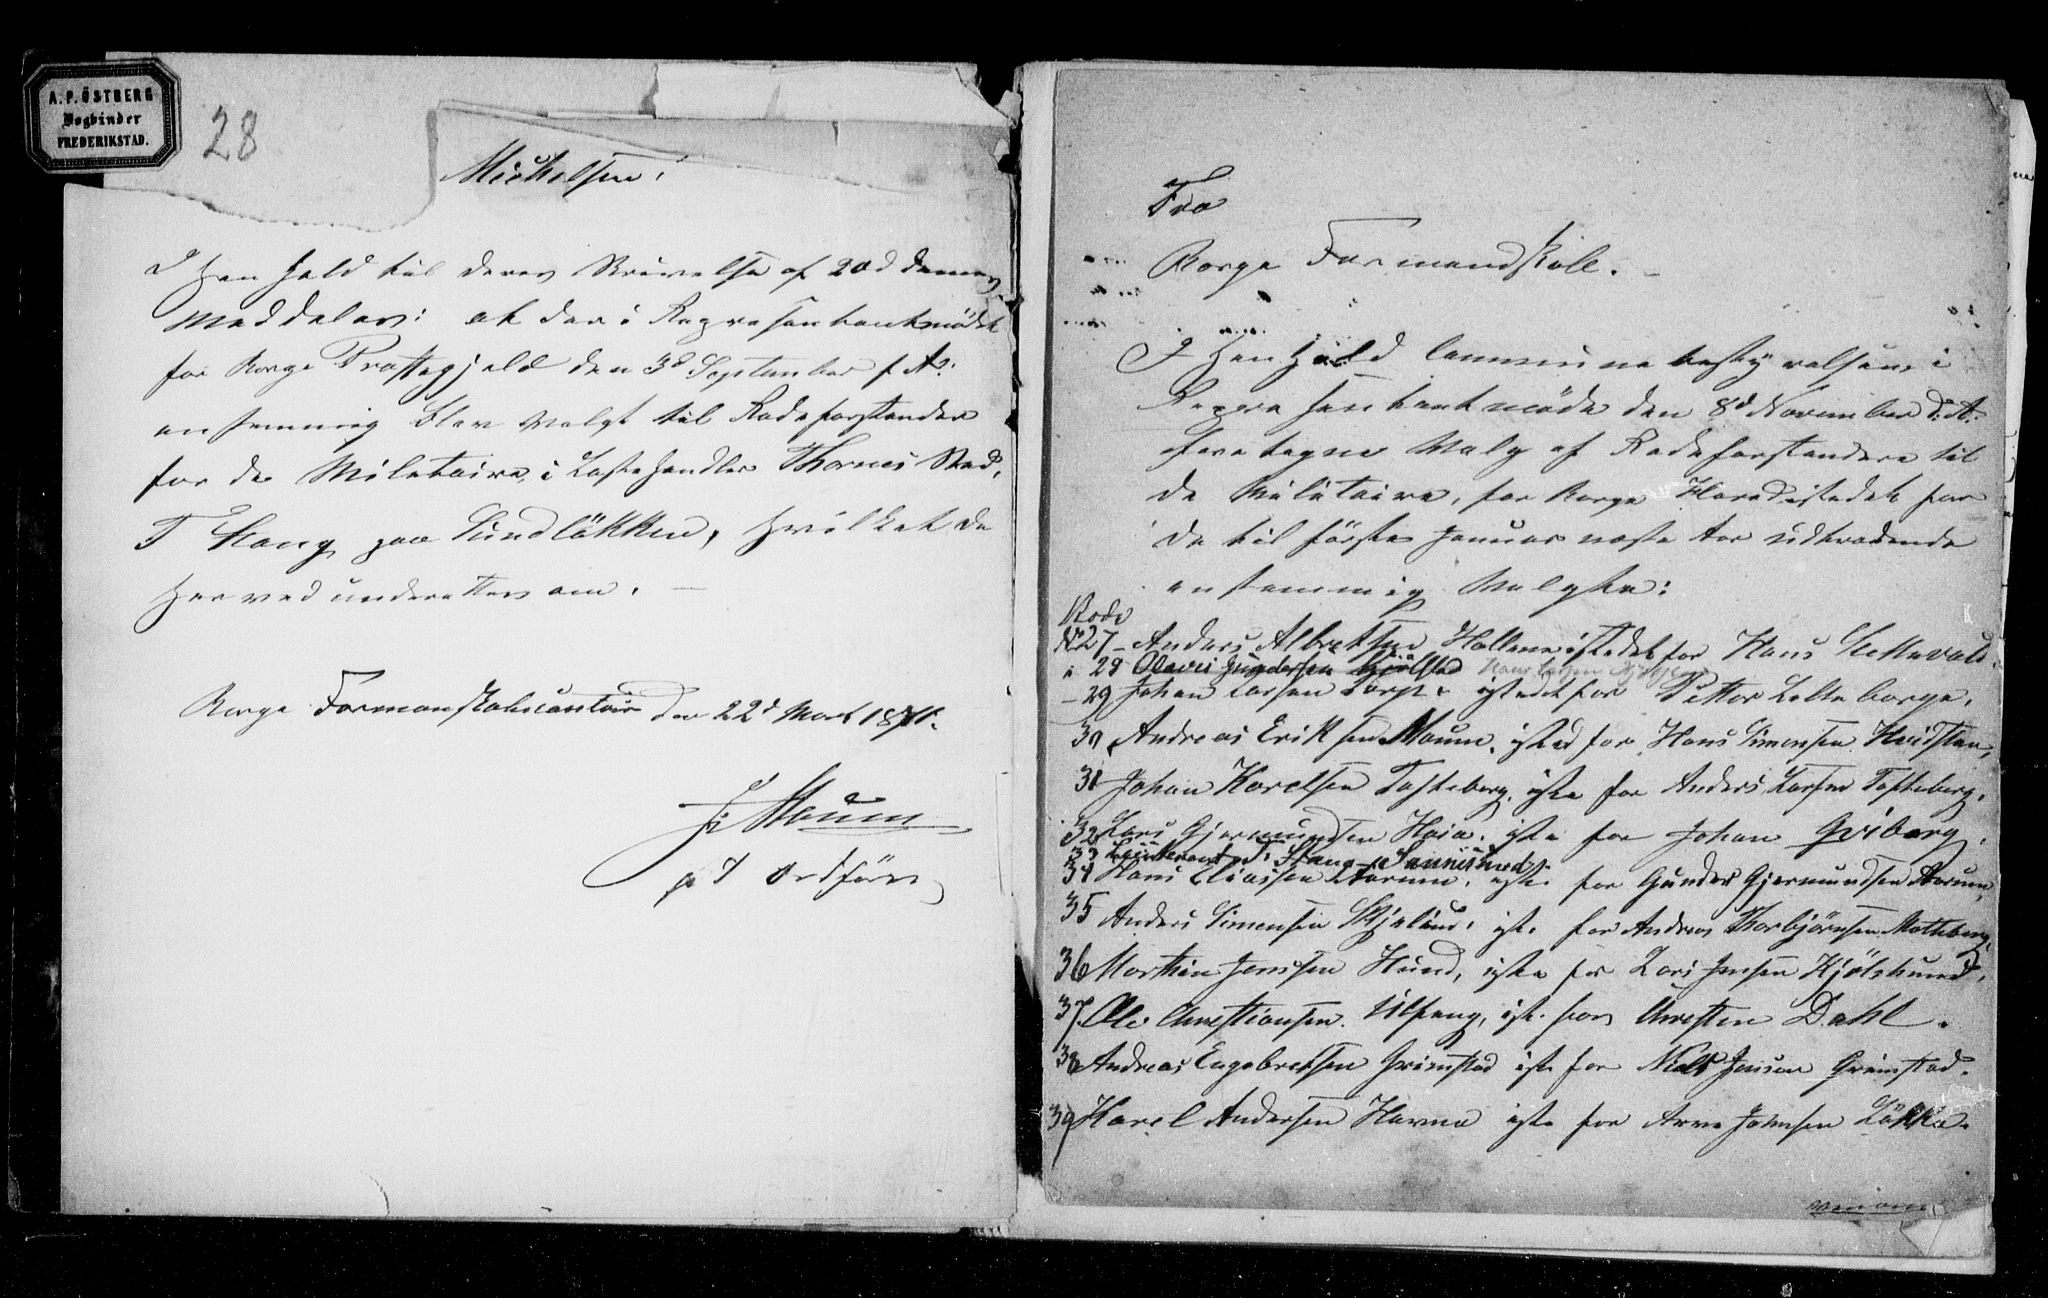 A. P. ÖSTBERG
Bogbinder
FREDERIKSTAD.
28
Michelsen!
I Henhold til deres Skrivelse af 20d dennes
meddeles: at der i Repræsentantmöde
for Borge Præstegjeld den 3d September f. A:
enstemmig blev valgt til Rodeforstander
for de Militaire, i Lastehandler Thornes Sted,
T Stang paa Sundlökken, hvilket de
herved underrettes om. —
Borge Formanskabscontoir den 22d Mart 1871.
Moum
p t Ordförer
Fra
Borge Formandskab. —
I Henhold Communebestyrelsens i
Repræsentantmöde den 8d November d. A.
foretagne Valg af Rodeforstandere til
de Militaire, for Borge Herred istedet for
de til förste Januar næste Aar udtrædende
enstemmig Valgte:
Rode
No 27 – Anders Albretsen Hallene istedet for Hans Lettevold.
" 28 Olavus Gundersen Kjölstad Hans Larsen
– 29 Johan Larsen Torp istedet for Petter Lilleborge.
30 Andreas Eriksen Moum, isted for Hans Simensen Hvidsten,
31 Johan Karelsen Tofteberg, iste for Anders Larsen Tofteberg.
32 Lars Gjermundsen Haia, iste for Johan Gviberg.
33 Leutenant T: Stang
34 Hans Eliassen Aarum, iste for Gunder Gjermundsen Aarum,
35 Anders Simensen Skjælin, iste for Andreas Thorbjørnsen Molteberg,
36 Marthin Jenssen Hund, iste for Lars Jensen Kjölshund,
37 Ole Chrestiansen Ulfeng, iste for Chresten Dahl.
38 Andreas Engebretsen Grimstad iste for Niels Jensen Grimstad.
39 Karel Andersen Havna iste for Arne Johnsen Lökka.
Vend om!